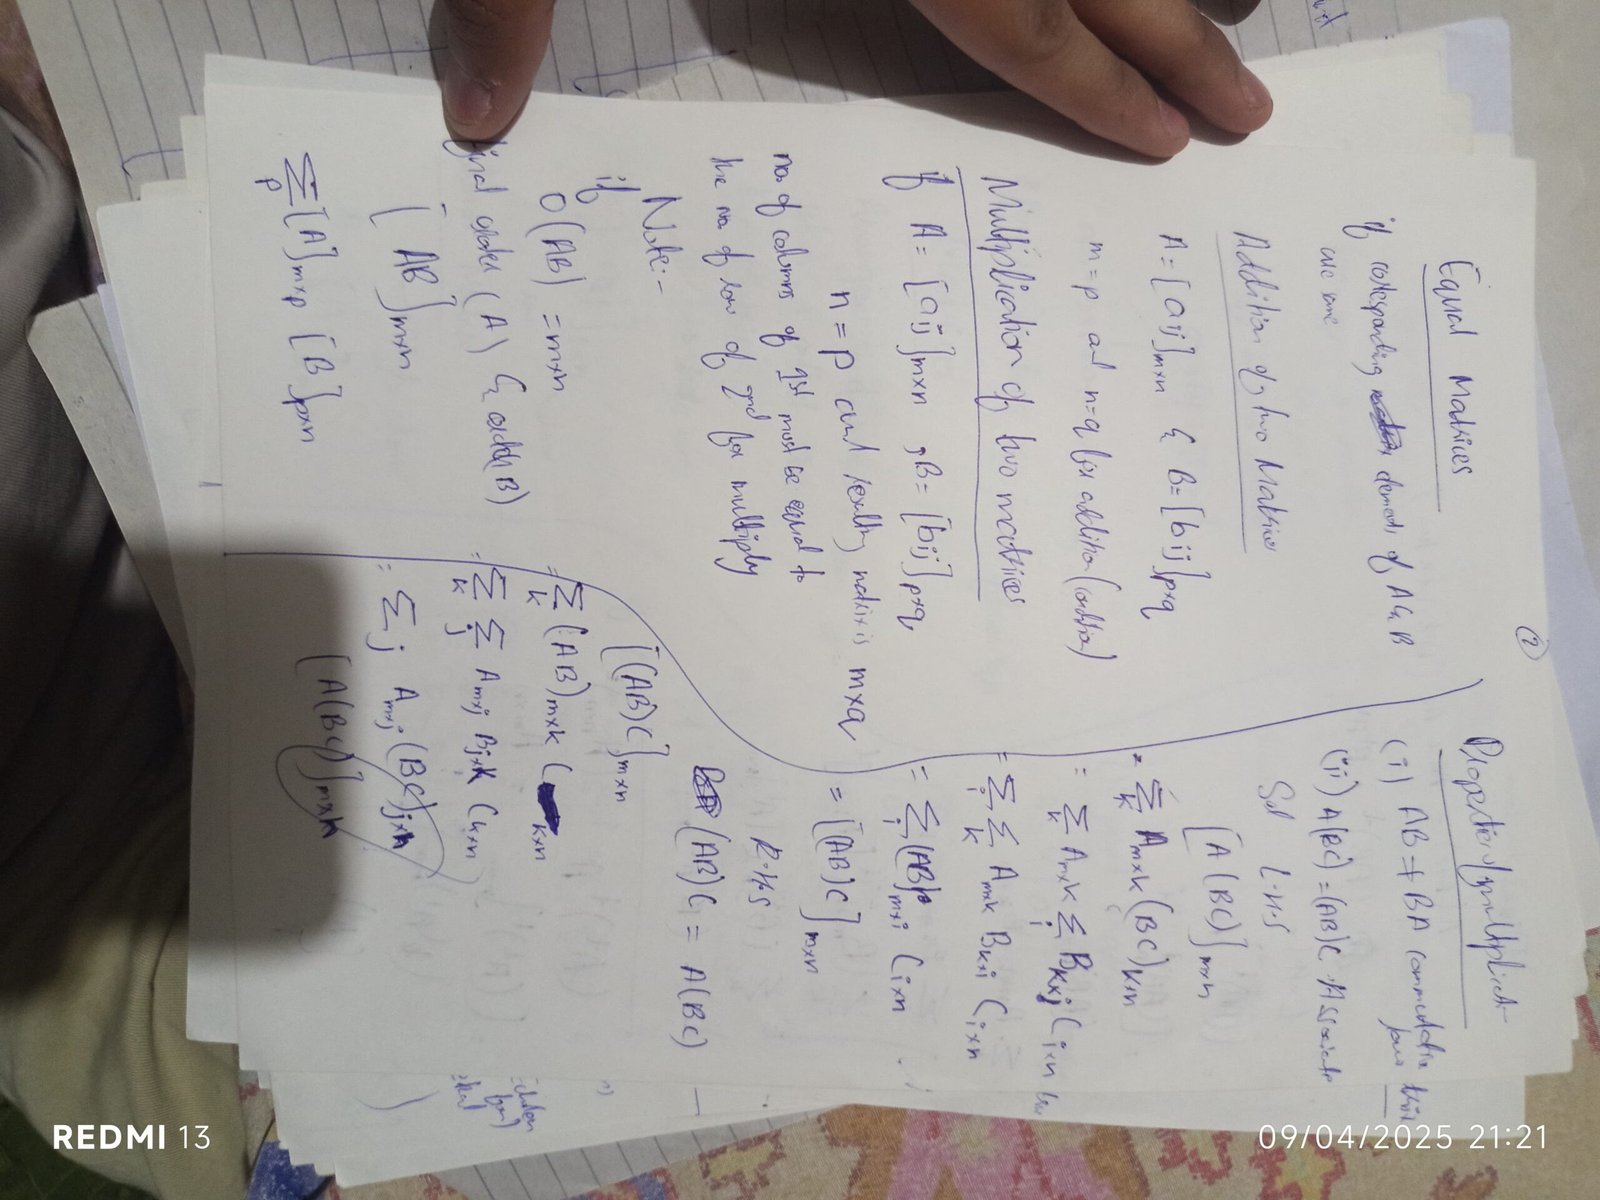 (2)
Equal Matrices
if corresponding elements of A & B
are same
Addition of two Matrices
A = [aij]m×n & B = [bij]p×q
m = p and n = q for addition (condition)
Multiplication of two matrices
if A = [aij]m×n , B = [bij]p×q
n = p and matrix is m×q
no. of columns of 1st must be equal to
the no. of row of 2nd for multiply
Note:-
if
O(AB) = m×n
order (A) & order(B)
[AB]m×n
∑p [A]m×p [B]p×n
(i) AB ≠ BA commutative
(ii) A(BC) = (AB)C
Sol L.H.S
[A(BC)]m×n
= ∑k Am×k (BC)k×n
= ∑k Am×k ∑i Bk×i Ci×n
= ∑i ∑k Am×k Bk×i Ci×n
= ∑i (AB)m×i Ci×n
= [(AB)C]m×n
R.H.S
(AB)C = A(BC)
[(AB)C]m×n
= ∑k (AB)m×k Ck×n
= ∑k ∑j Am×j Bj×k Ck×n
= ∑j Am×j (BC)j×n
[A(BC)]m×n
REDMI 13
09/04/2025 21:21